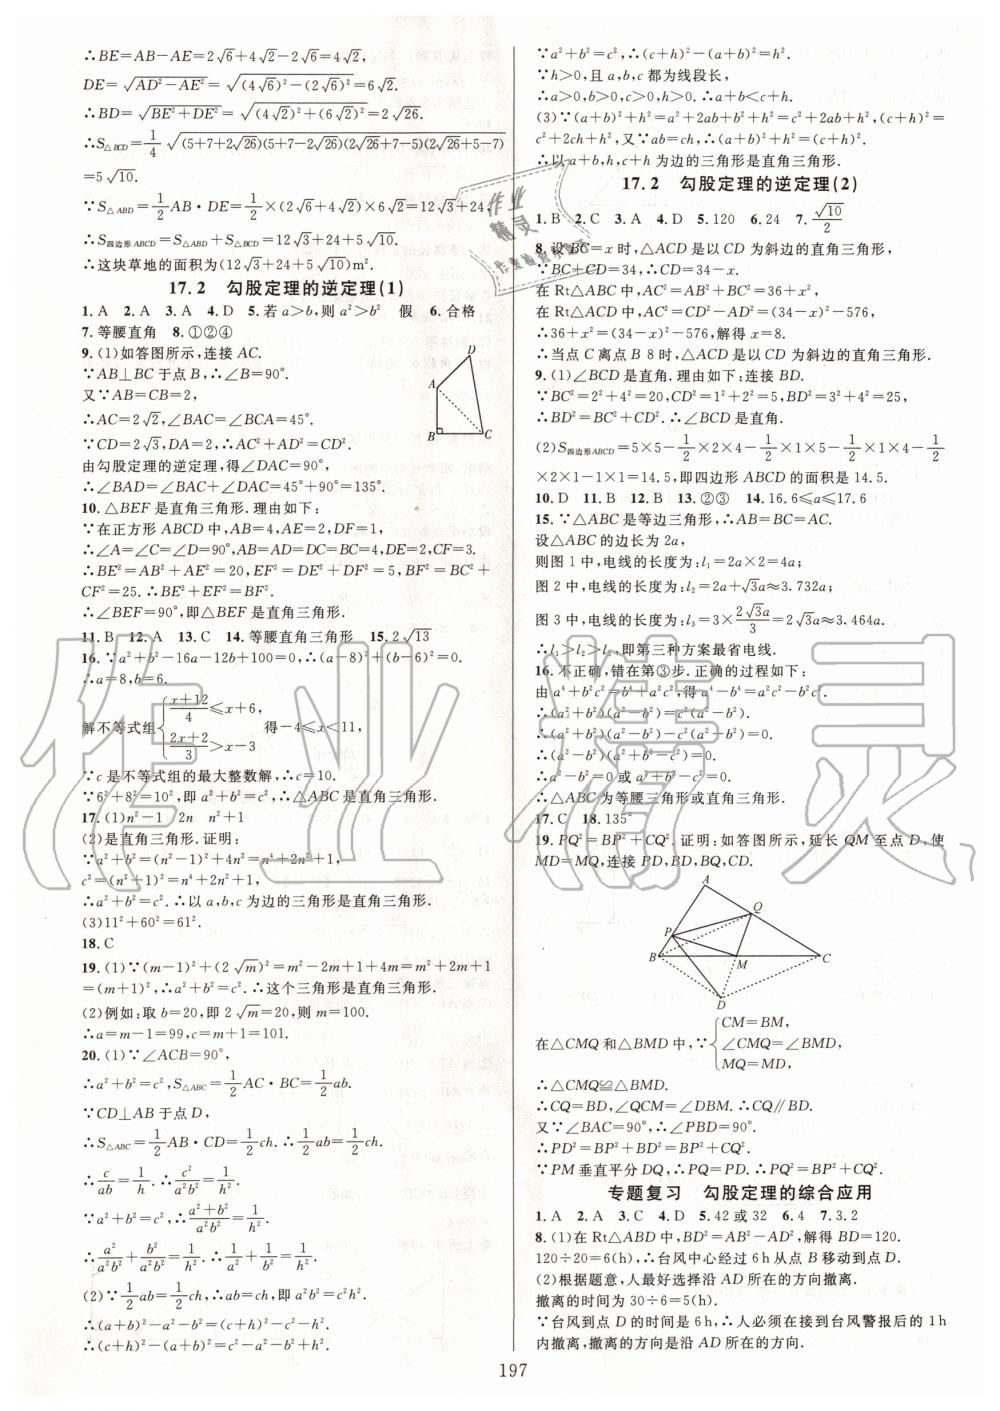 ∴BE=AB-AE=2√6+4√2-2√6=4√2,
DE=√(AD²-AE²)=√((4√6)²-(2√6)²)=6√2.
∴BD=√(BE²+DE²)=√((4√2)²+(6√2)²)=2√26.
∴S△BCD=1/4√((5+7+2√26)(5+7-2√26)(2√26+7-5)(2√26+5-7))
=5√10.
∵S△ABD=1/2AB·DE=1/2×(2√6+4√2)×6√2=12√3+24,
∴S四边形ABCD=S△ABD+S△BCD=12√3+24+5√10.
∴这块草地的面积为(12√3+24+5√10)m².
17.2 勾股定理的逆定理(1)
1.A 2.A 3.A 4.D 5.若a>b,则a²>b² 假 6.合格
7.等腰直角 8.①②④
9.(1)如答图所示,连接AC.
∵AB⊥BC于点B,∴∠B=90°.
又∵AB=CB=2,
∴AC=2√2,∠BAC=∠BCA=45°.
∵CD=2√3,DA=2,∴AC²+AD²=CD²
由勾股定理的逆定理,得∠DAC=90°,
∴∠BAD=∠BAC+∠DAC=45°+90°=135°.
D
A
B C
10.△BEF是直角三角形.理由如下:
∵在正方形ABCD中,AB=4,AE=2,DF=1,
∴∠A=∠C=∠D=90°,AB=AD=DC=BC=4,DE=2,CF=3.
∴BE²=AB²+AE²=20,EF²=DE²+DF²=5,BF²=BC²+
CF²=25.∴BE²+EF²=BF².
∴∠BEF=90°,即△BEF是直角三角形.
11.B 12.A 13.C 14.等腰直角三角形 15.2√13
16.∵a²+b²-16a-12b+100=0,∴(a-8)²+(b-6)²=0.
∴a=8,b=6.
解不等式组{(x+12)/4≤x+6, (2x+2)/3>x-3 得-4≤x<11,
∵c是不等式组的最大整数解,∴c=10.
∵6²+8²=10²,即a²+b²=c²,∴△ABC是直角三角形.
17.(1)n²-1 2n n²+1
(2)是直角三角形.证明:
∵a²+b²=(n²-1)²+4n²=n⁴+2n²+1,
c²=(n²+1)²=n⁴+2n²+1,
∴a²+b²=c².∴以a,b,c为边的三角形是直角三角形.
(3)11²+60²=61².
18.C
19.(1)∵(m-1)²+(2√m)²=m²-2m+1+4m=m²+2m+1
=(m+1)²,∴这个三角形是直角三角形.
(2)例如:取b=20,即2√m=20,则m=100.
∴a=m-1=99,c=m+1=101.
20.(1)∵∠ACB=90°,
∴a²+b²=c²,S△ABC=1/2AC·BC=1/2ab.
∵CD⊥AB于点D,
∴S△ABC=1/2AB·CD=1/2ch.∴1/2ab=1/2ch.
∴c/ab=1/h.∴c²/a²b²=1/h².
∵a²+b²=c²,∴(a²+b²)/a²b²=1/h².
∴a²/a²b²+b²/a²b²=1/h².∴1/a²+1/b²=1/h².
(2)∵1/2ab=1/2ch,∴ab=ch,即a²b²=c²h².
∴(a+b)²-a²-b²=(c+h)²-c²-h².
∴(a+b)²-c²=(c+h)²-c²-h².
∵a²+b²=c²,∴(c+h)²-(a+b)²=h².
∵h>0,且a,b,c都为线段长,
∴a>0,b>0,c>0,h>0.∴a+b<c+h.
(3)∵(a+b)²+h²=a²+2ab+b²+h²=c²+2ab+h²,(c+h)²=
c²+2ch+h²,又∵ab=ch,∴(a+b)²+h²=(c+h)².
∴以a+b,h,c+h为边的三角形是直角三角形.
17.2 勾股定理的逆定理(2)
1.B 2.C 3.A 4.D 5.120 6.24 7.√10/2
8.设BC=x时,△ACD是以CD为斜边的直角三角形,
∵BC+CD=34,∴CD=34-x.
在Rt△ABC中,AC²=AB²+BC²=36+x²,
在Rt△ACD中,AC²=CD²-AD²=(34-x)²-576,
∴36+x²=(34-x)²-576,解得x=8.
∴当点C离点B 8时,△ACD是以CD为斜边的直角三角形.
9.(1)∠BCD是直角.理由如下:连接BD.
∵BC²=2²+4²=20,CD²=1²+2²=5,BD²=3²+4²=25,
∴BD²=BC²+CD².∴∠BCD是直角.
(2)S四边形ABCD=5×5-1/2×2×4-1/2×1×5-1/2×1×4-1/2
×2×1-1×1=14.5,即四边形ABCD的面积是14.5.
10.D 11.B 12.B 13.②③ 14.16.6≤a≤17.6
15.∵△ABC是等边三角形,∴AB=BC=AC.
设△ABC的边长为2a,
则图1中,电线的长度为:l₁=2a×2=4a;
图2中,电线的长度为:l₂=2a+√3a≈3.732a;
图3中,电线的长度为:l₃=3×2√3a/3=2√3a≈3.464a.
∴l₁>l₂>l₃,即第三种方案最省电线.
16.不正确,错在第③步.正确的过程如下:
由a⁴+b²c²=b⁴+a²c²,得a⁴-b⁴=a²c²-b²c².
∴(a²+b²)(a²-b²)=c²(a²-b²).
∴(a²+b²)(a²-b²)-c²(a²-b²)=0.
∴(a²-b²)(a²+b²-c²)=0.
∴a²-b²=0或a²+b²-c²=0.
∴△ABC为等腰三角形或直角三角形.
17.C 18.135°
19.PQ²=BP²+CQ².证明:如答图所示,延长QM至点D,使
MD=MQ,连接PD,BD,BQ,CD.
A
Q
P
B M C
D
在△CMQ和△BMD中,∵{CM=BM, ∠CMQ=∠BMD, MQ=MD,
∴△CMQ≌△BMD.
∴CQ=BD,∠QCM=∠DBM.∴CQ∥BD.
又∵∠BAC=90°,∴∠PBD=90°.
∴PD²=BP²+BD²=BP²+CQ².
∵PM垂直平分DQ,∴PQ=PD.∴PQ²=BP²+CQ²
专题复习 勾股定理的综合应用
1.A 2.A 3.C 4.D 5.42或32 6.4 7.3.2
8.(1)在Rt△ABD中,∵BD²=AB²-AD²,解得BD=120.
120÷20=6(h),∴台风中心经过6h从点B移动到点D.
(2)根据题意,人最好选择沿AD所在的方向撤离.
撤离的时间为30÷6=5(h).
∵台风到点D的时间是6h,∴人必须在接到台风警报后的1h
内撤离,撤离的方向是沿AD所在的方向.
197
作业精灵
作业
精灵